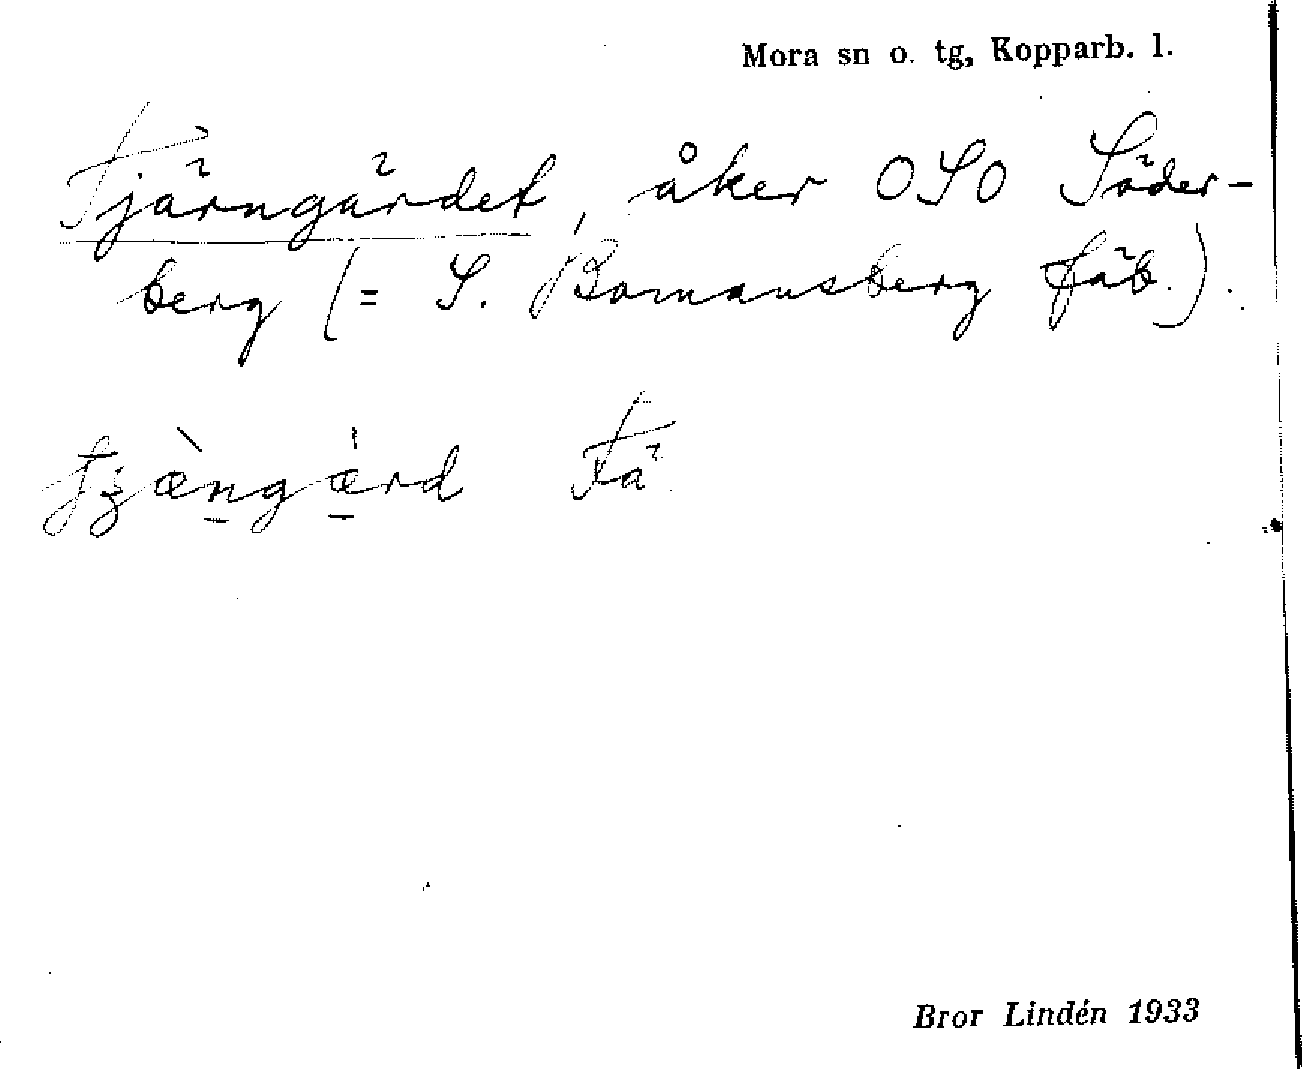 Mora sn o. tg, Kopparb. l.
Tjärngärdet, åker OSO Söder-
berg (= S. Bomansberg fäb.).
Fä
Bror Lindén 1933